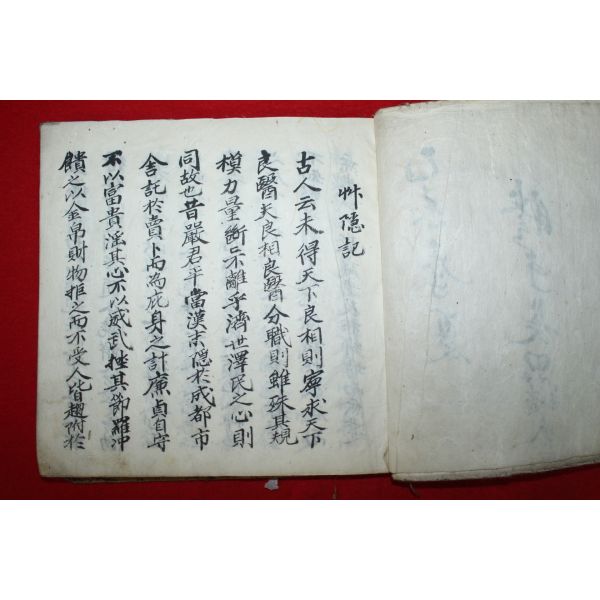 艸隱記
古人云未得天下良相則寧求天下
良醫夫良相良醫分職則雖殊其規
模力量斷不離乎濟世澤民之心則
同故也昔嚴君平當漢末隱於成都市
舍託於賣卜而為庇身之計廉貞自守
不以富貴淫其心不以威武挫其節羅冲
饋之以金帛財物拒之而不受人皆趨附於